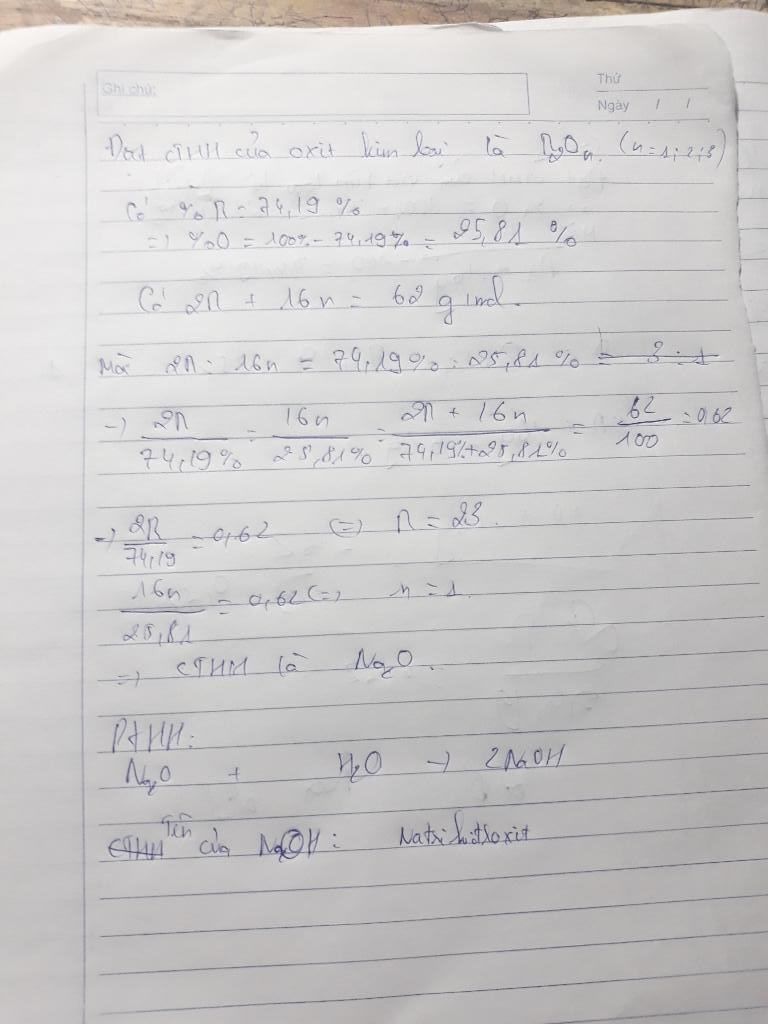 Ghi chú:
Thứ
Ngày / /
Đặt CTHH của oxit kim loại là R₂Oₙ. (n=1;2;3)
Có %R = 74,19 %
=) %O = 100% - 74,19% = 25,81 %
Có 2R + 16n = 62 g/mol.
Mà 2R : 16n = 74,19% : 25,81 % = 3 : 1
-) 2R/74,19% = 16n/25,81% = (2R + 16n)/(74,19%+25,81%) = 62/100 = 0,62
-) 2R/74,19 = 0,62 (=) R = 23.
16n/25,81 = 0,62 (=) n = 1.
=) CTHH là Na₂O.
PTHH:
Na₂O + H₂O -) 2NaOH
CTHH Tên của NaOH: Natri hiđroxit